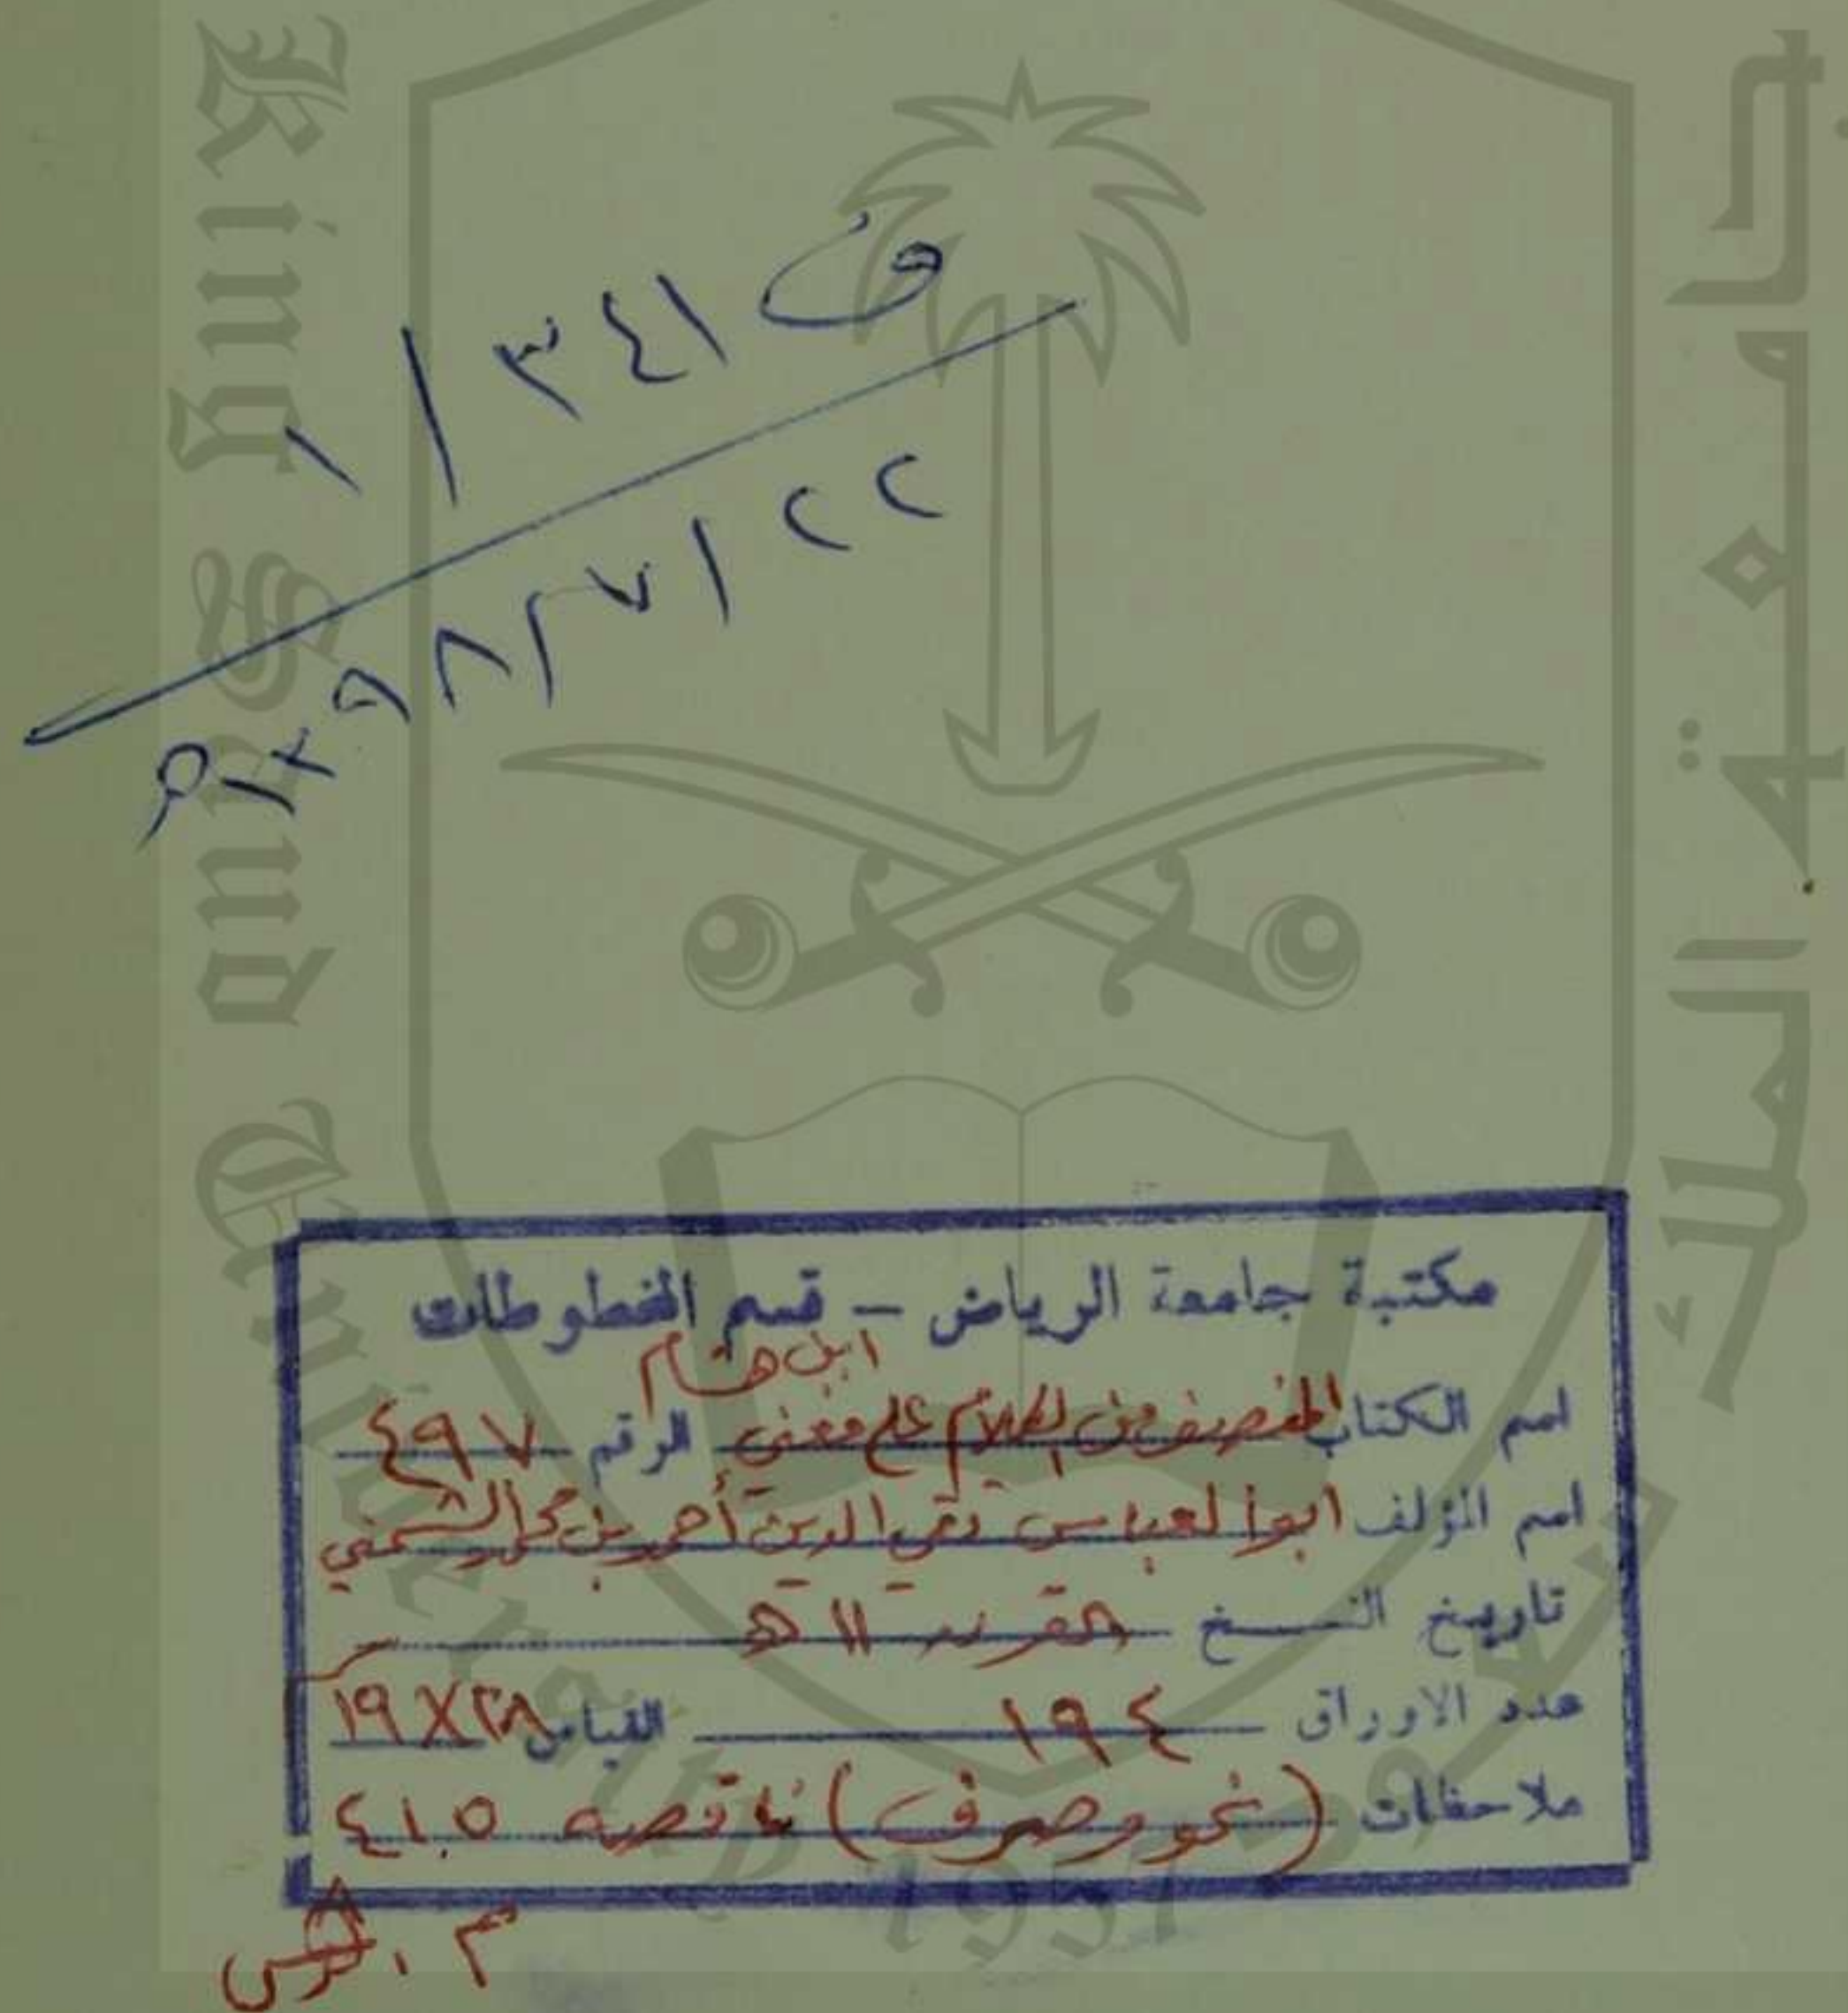 ف ٣٤١ / ١
٢٢ / ٧ / ١٣٩٨ هـ
مكتبة جامعة الرياض - قسم المخطوطات
ابن هشام
اسم الكتاب المنصف من الكلام على مغني الرقم ٤٩٧
اسم المؤلف ابو العباس تقي الدين أحمد بن محمد الشمني
تاريخ النسخ القرن ١١ هـ
عدد الاوراق ١٩٤ القياس ٢٨ X ١٩
ملاحظات (نحو وصرف) ناقصه ٤١٠٥
King Saud University
1957
جامعة الملك سعود